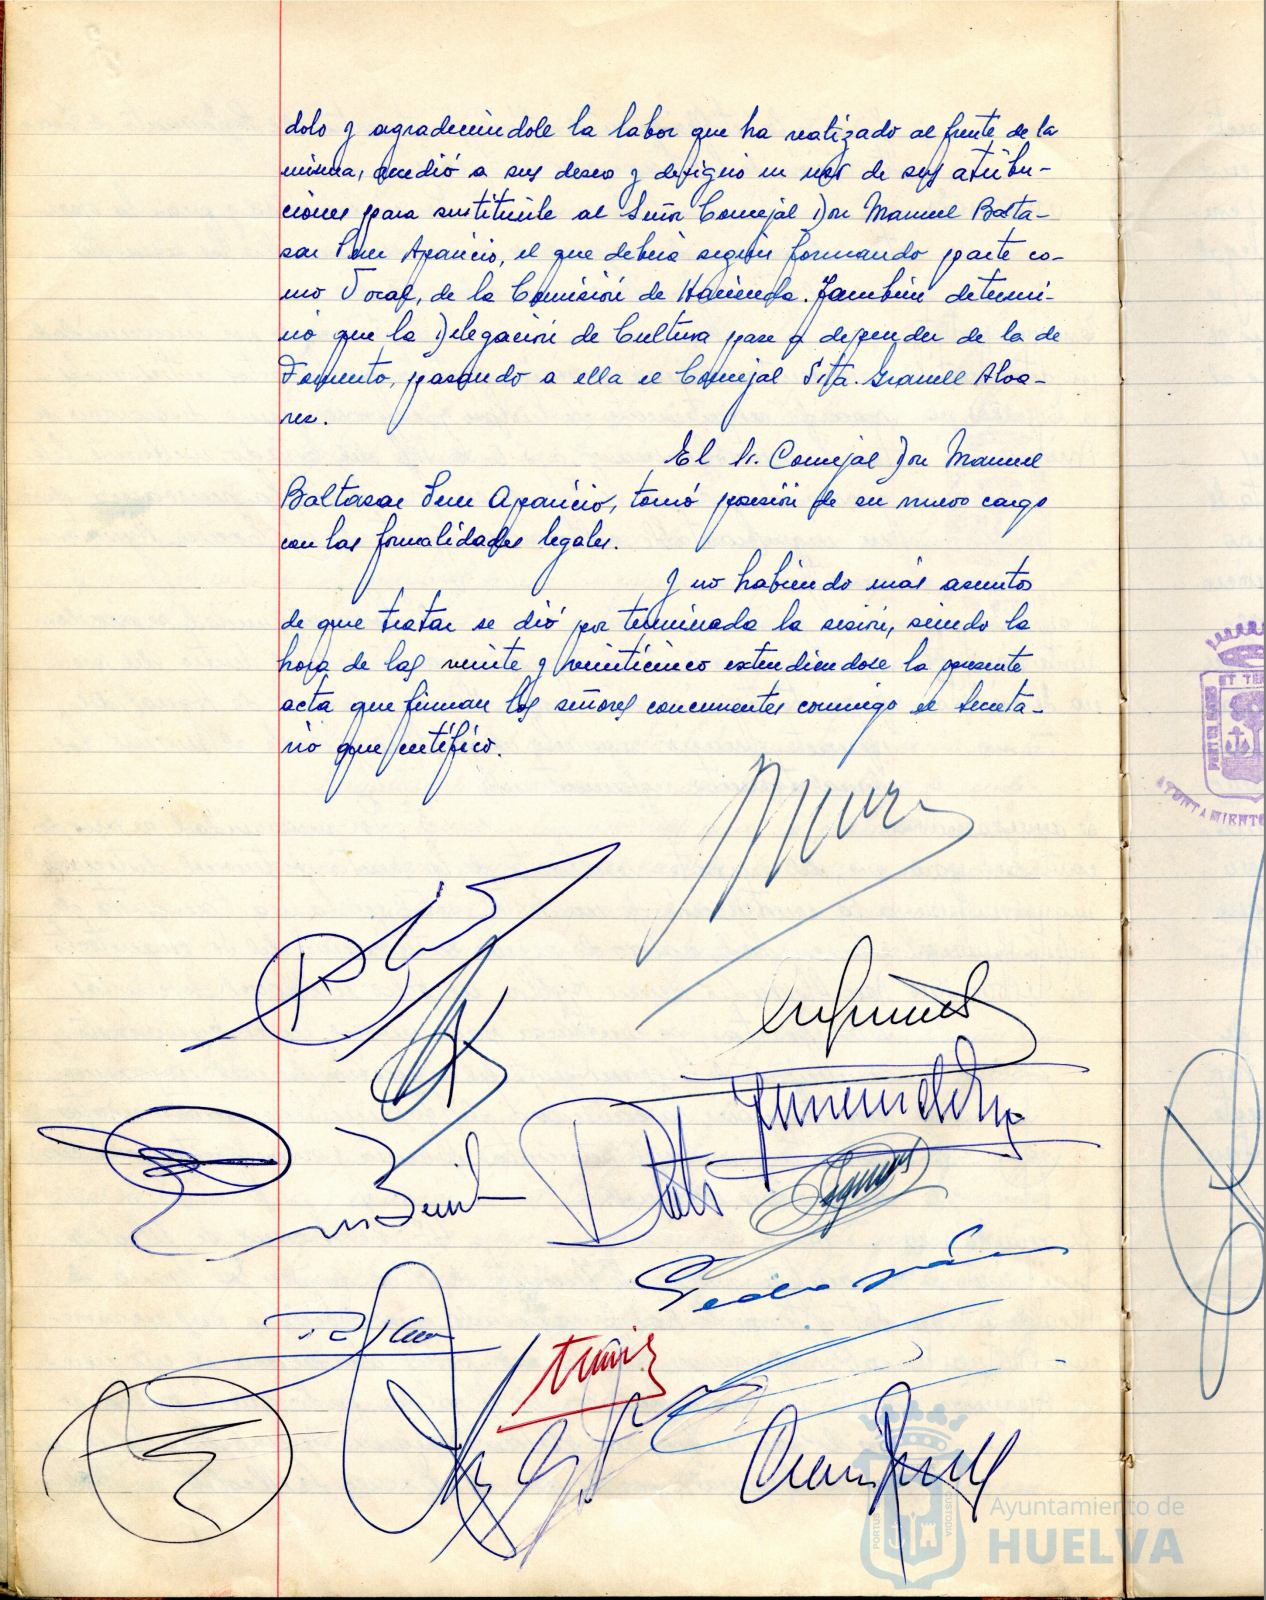 dolo y agradeciéndole la labor que ha realizado al frente de la
misma, accedió a sus deseo y designó en uso de sus atribu-
ciones para sustituirle al Señor Concejal Don Manuel Balta-
sar Pern Aparicio, el que deberá seguir formando parte co-
mo Vocal, de la Comisión de Hacienda. También determi-
nó que la Delegación de Cultura pase a depender de la de
Fomento, pasando a ella el Concejal Srta. Granell Alva-
rez.
El Sr. Concejal Don Manuel
Baltasar Pern Aparicio, tomó posesión de su nuevo cargo
con las formalidades legales.
Y no habiendo más asuntos
de que tratar se dió por terminada la sesión, siendo la
hora de las veinte y veinticinco extendiendose la presente
acta que firman los señores concurrentes conmigo el Secreta-
rio que certifico.
AYUNTAMIENTO
Ayuntamiento de
HUELVA